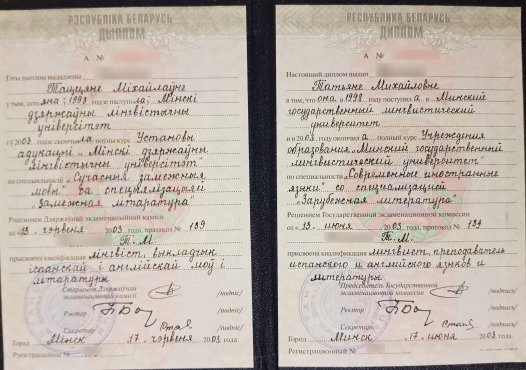 РЭСПУБЛІКА БЕЛАРУСЬ
ДЫПЛОМ
А №
Гэты дыплом выдадзены
Таццяне Міхайлаўне
у тым, што яна ў 1998 годзе паступіла ў Мінскі
дзяржаўны лінгвістычны
універсітэт
і ў 2003 годзе скончыла поўны курс Установы
адукацыі "Мінскі дзяржаўны
лінгвістычны універсітэт"
па спецыяльнасці "Сучасныя замежныя
мовы" са спецыялізацыяй
"Замежная літаратура"
Рашэннем Дзяржаўнай экзаменацыйнай камісіі
ад 13 чэрвеня 2003 года, пратакол № 139
Т.М.
прысвоена кваліфікацыя лінгвіст, выкладчык
іспанскай і англійскай моў і
літаратуры
Старшыня Дзяржаўнай
экзаменацыйнай камісіі /подпіс/
Рэктар /подпіс/
Сакратар /подпіс/
Горад Мінск 17 чэрвеня 2003 года.
Рэгістрацыйны №
РЕСПУБЛИКА БЕЛАРУСЬ
ДИПЛОМ
А №
Настоящий диплом выдан
Татьяне Михайловне
в том, что она в 1998 году поступила в Минский
государственный лингвистический
университет
и в 2003 году окончила полный курс Учреждения
образования "Минский государственный
лингвистический университет"
по специальности "Современные иностранные
языки" со специализацией
"Зарубежная литература"
Решением Государственной экзаменационной комиссии
от 13 июня 2003 года, протокол № 139
Т.М.
присвоена квалификация лингвист, преподаватель
испанского и английского языков и
литературы
Председатель Государственной
экзаменационной комиссии /подпись/
Ректор /подпись/
Секретарь /подпись/
Город Минск 17 июня 2003 года.
Регистрационный №